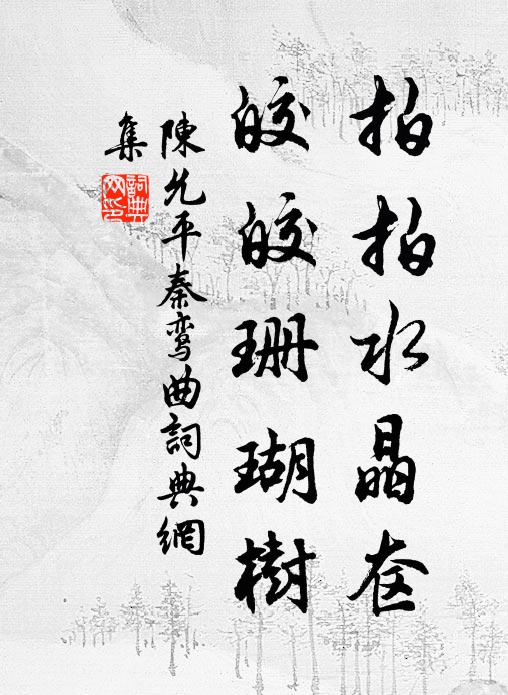 拍拍水晶奁
皎皎珊瑚樹
陳允平秦鸾曲詞典網
集
詞典
网印